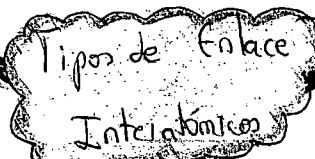 Tipos de Enlace
Interatómicos